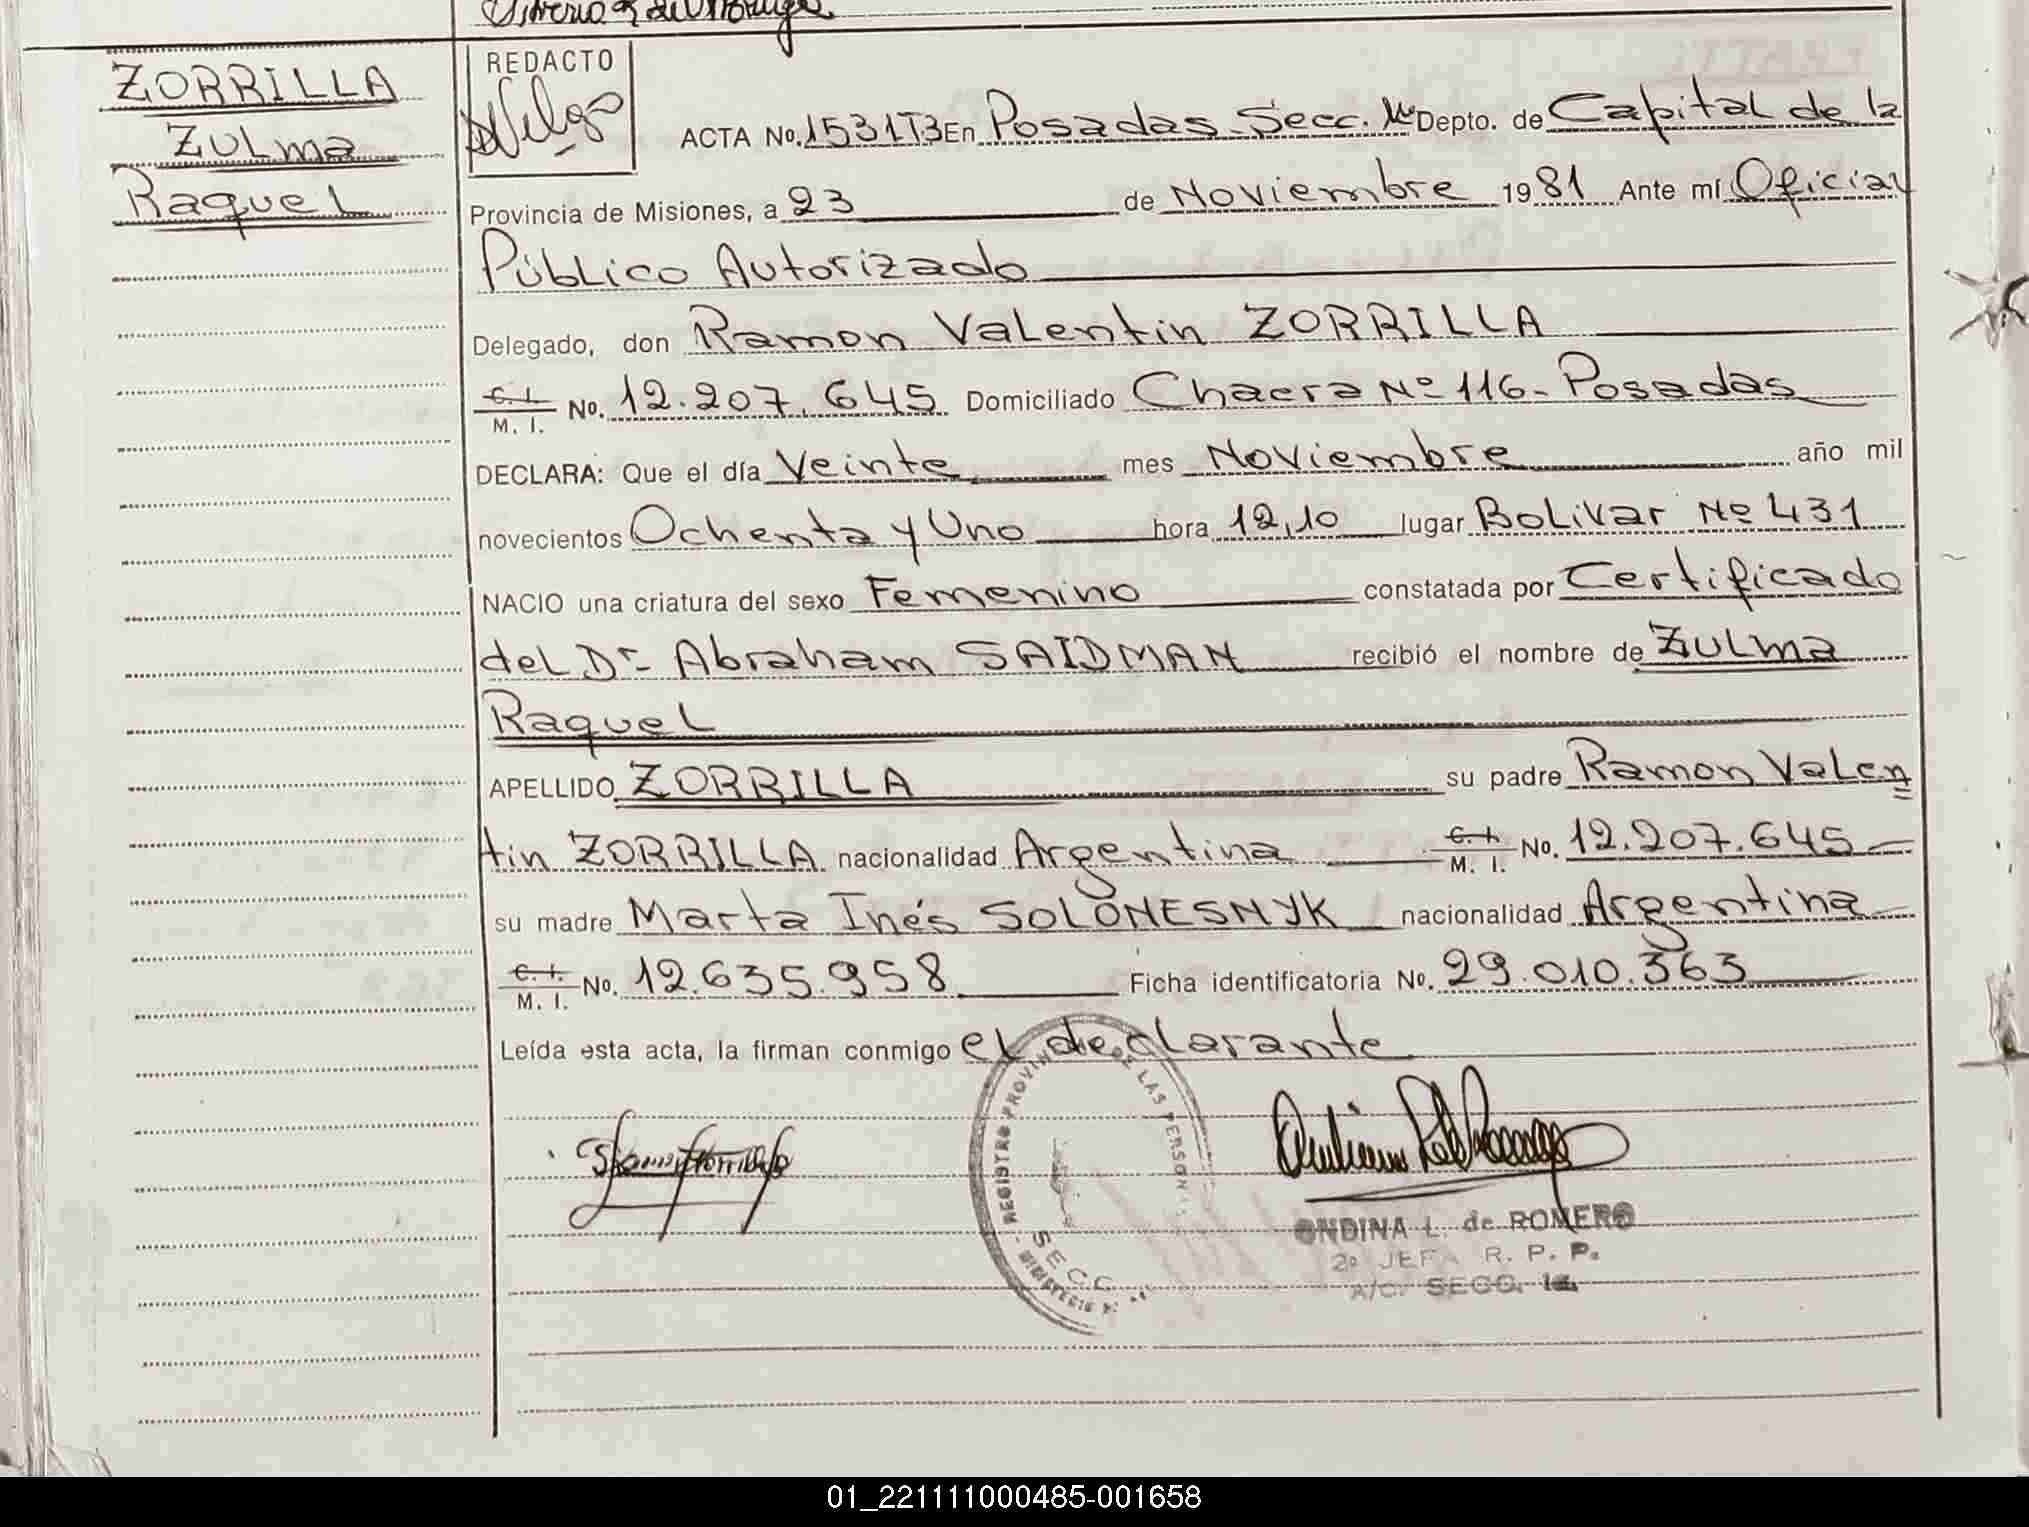 ZORRILLA
Zulma
Raquel
REDACTO
ACTA No. 1531T3 En Posadas Secc. 1ra Depto. de Capital de la
Provincia de Misiones, a 23 de Noviembre 1981 Ante mí Oficial
Público Autorizado
Delegado, don Ramon Valentin ZORRILLA
C. I. / M. I. No. 12.207.645 Domiciliado Chacra Nº 116- Posadas
DECLARA: Que el día Veinte mes Noviembre año mil
novecientos Ochenta y Uno hora 12,10 lugar Bolivar Nº 431
NACIO una criatura del sexo Femenino constatada por Certificado
del Dr- Abraham SAIDMAN recibió el nombre de Zulma
Raquel
APELLIDO ZORRILLA su padre Ramon Valen
tin ZORRILLA nacionalidad Argentina C. I. / M. I. No. 12.207.645
su madre Marta Inés SOLONESNYK nacionalidad Argentina
C. I. / M. I. No. 12.635.958 Ficha identificatoria No. 29.010.363
Leída esta acta, la firman conmigo el declarante
REGISTRO PROVIN DE LAS PERSON
SECC.
ONDINA L. de ROMERO
2º JEFA R. P. P.
A/C. SECC. 1a.
01_221111000485-001658